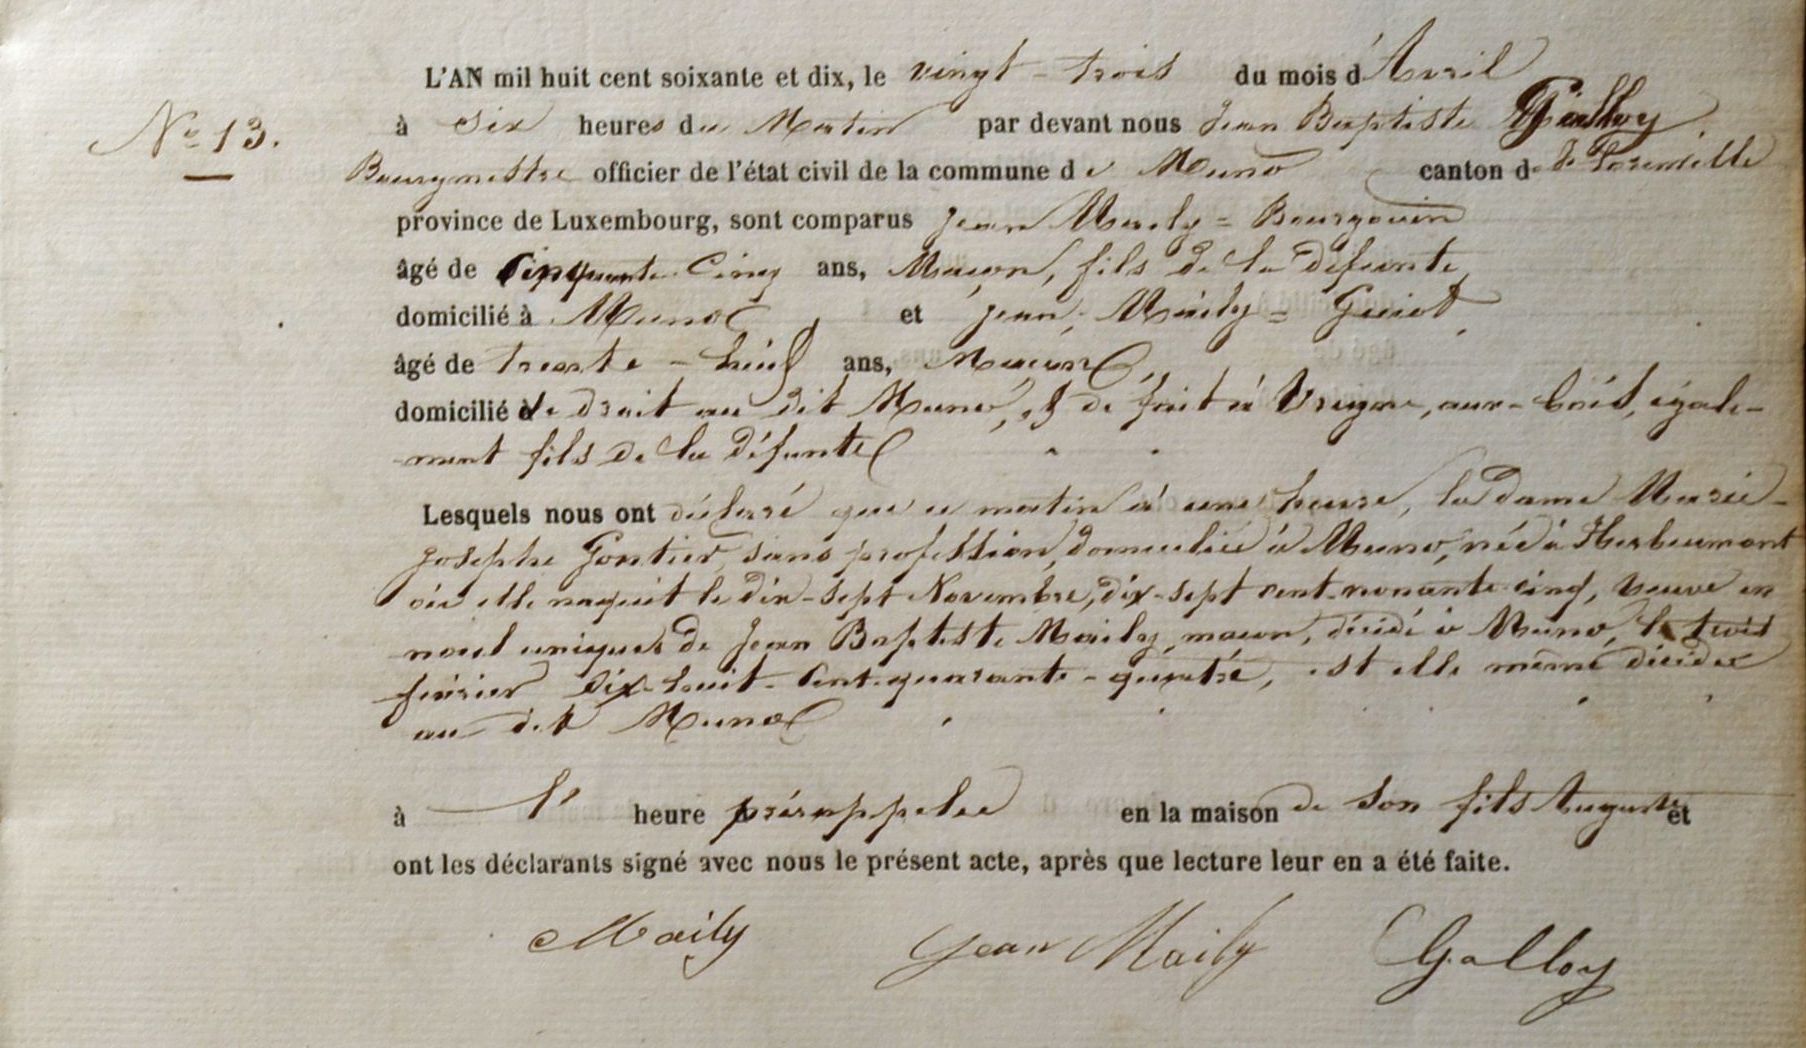 L'AN mil huit cent soixante et dix, le vingt-trois du mois d'Avril
N° 13.
à six heures du Matin par devant nous Jean Baptiste Galloy
Bourgmestre officier de l'état civil de la commune de Muno canton de Florenville
province de Luxembourg, sont comparus Jean Maily = Bourgouin
âgé de Cinquante Cinq ans, Maçon, fils de la défunte,
domicilié à Muno et Jean, Maily = Guiot,
âgé de trente-huit ans, Maçon,
domicilié de droit au dit Muno, et de fait à Vrigne, aux-bois, égale-
ment fils de la défunte
Lesquels nous ont déclaré que ce matin à une heure, la dame Marie-
Josephe Gontier, sans profession, domiciliée à Muno, né à Herbeumont
où elle naquit le dix-sept Novembre, dix-sept cent-nonante-cinq, veuve en
uniques de Jean Baptiste Maily, maçon, décidé à Muno, le trois
février dix-huit-Cent-quarante-quatre, est elle même décidée
au dit Muno
à l' heure prérappelée en la maison de son fils Auguste et
ont les déclarants signé avec nous le présent acte, après que lecture leur en a été faite.
Maily Jean Maily Galloy